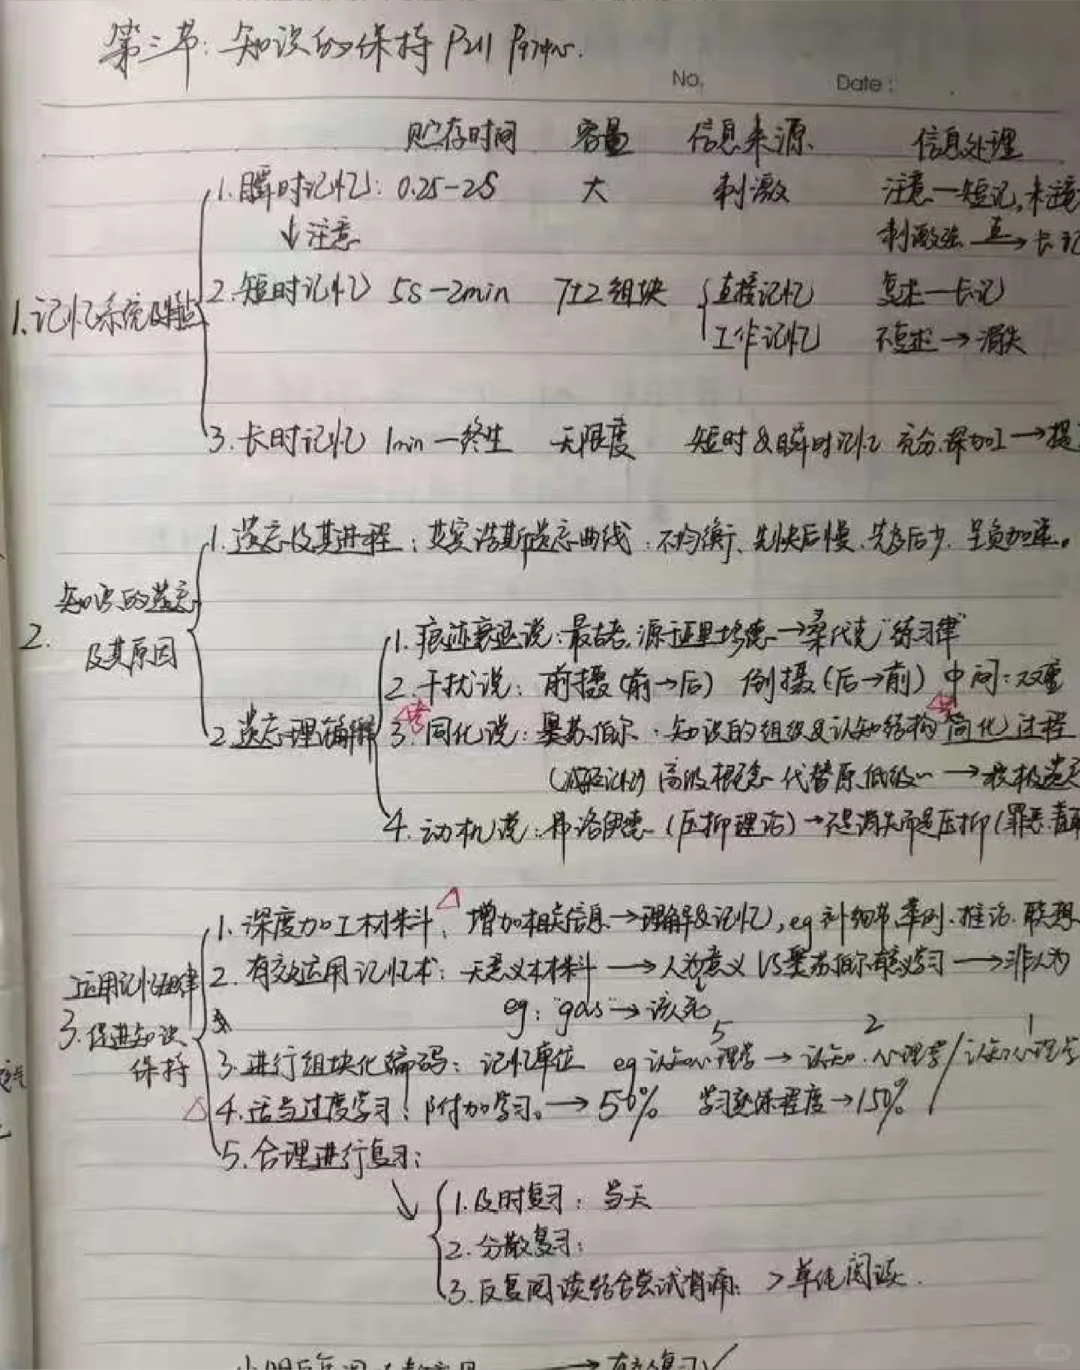 第三节:知识的保持 P211
No. Date:
贮存时间 容量 信息来源 信息处理
1.瞬时记忆:0.25-2S 大 刺激 注意—短记,未注意
↓注意 刺激强 直→长记
1.记忆系统及特点
2.短时记忆 5S-2min 7±2组块 直接记忆 复述—长记
工作记忆 不复述→消失
3.长时记忆 1min—终生 无限度 短时&瞬时记忆 充分.深加工→提
2.知识的遗忘
及其原因
1.遗忘及其进程:艾宾浩斯遗忘曲线:不均衡、先快后慢、先多后少、呈负加速。
2.遗忘理论解释
1.痕迹衰退说:最古老,源于亚里士多德→桑代克"练习律"
2.干扰说:前摄(前→后) 倒摄(后→前) 中间:双重
考 考
3.同化说:奥苏伯尔:知识的组织及认知结构简化过程
(减轻记忆)高级概念代替原低级…→积极遗忘
4.动机说:弗洛伊德(压抑理论)→不是消失而是压抑(罪恶.
3.运用记忆规律
促进知识
保持
1.深度加工材料:增加相关信息→理解&记忆,eg补细节、举例、推论、联想
2.有效运用记忆术:无意义材料→人为意义 VS奥苏伯尔有意义学习→非人为
eg:"gas"→该死
5 2 1
3.进行组块化编码:记忆单位 eg认知心理学→认知.心理学/认知心理学
4.适当过度学习:附加学习。→50% 学习熟练程度→150%
5.合理进行复习:
1.及时复习:当天
2.分散复习:
3.反复阅读结合尝试背诵: >单纯阅读.